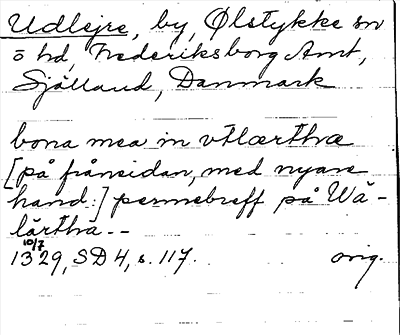 Udlejre, by, Ølstykke sn
o hd, Frederiksborg Amt,
Själland, Danmark
bona mea in vtlærthræ
[på frånsidan, med nyare
hand:] permebreff på Wä-
lärthra--
10/7
1329, SD 4, s. 117. orig.